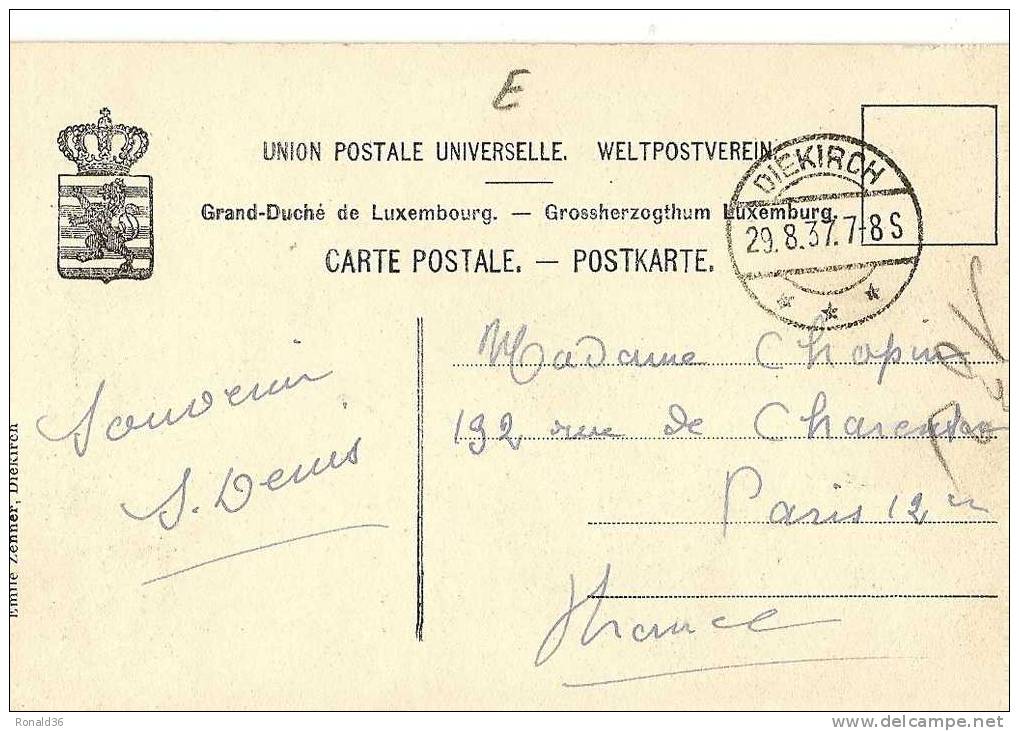 E
UNION POSTALE UNIVERSELLE. WELTPOSTVEREIN
Grand-Duché de Luxembourg. — Grossherzogthum Luxemburg.
CARTE POSTALE. — POSTKARTE.
DIEKIRCH
29.8.37.7-8 S
Souvenir
S. Denis
Madame Chopin
192 rue de Charenton
Paris 12
France
Emile Zenner, Diekirch
Ronald36
www.delcampe.net